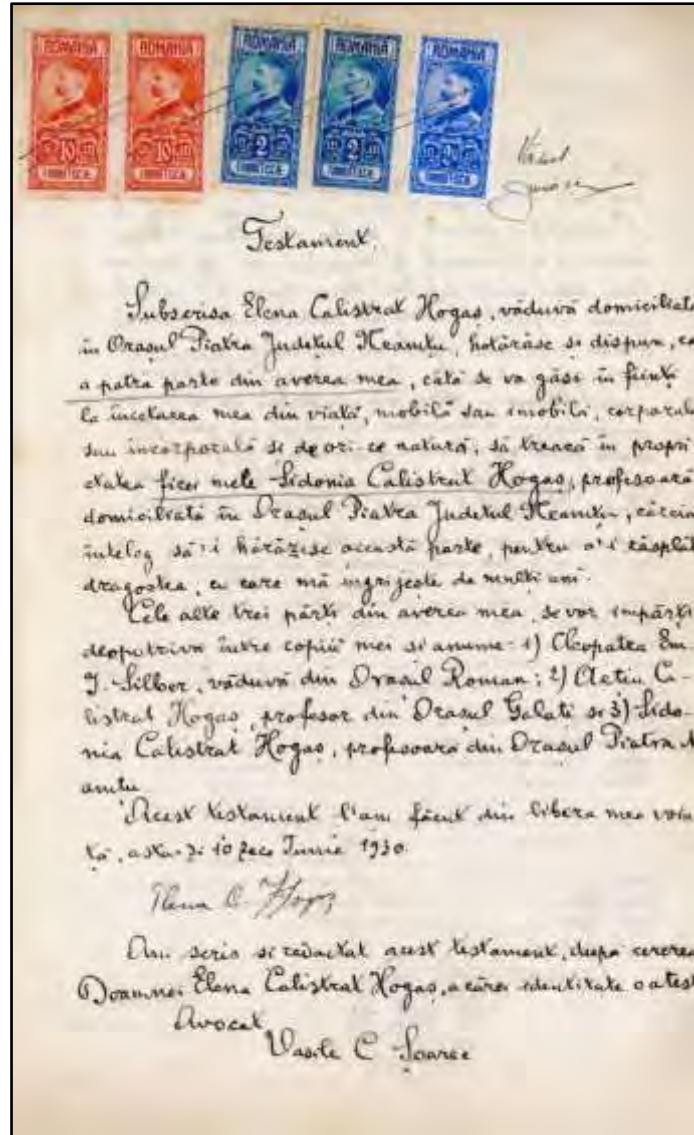 ROMANIA ROMANIA ROMANIA ROMANIA ROMANIA
10 10 2 2
Testament.
Subscrisa Elena Calistrat Hogaș, văduvă domiciliată
în Orașul Piatra Județul Neamțu, hotărăsc și dispun, ca
a patra parte din averea mea, câtă se va găsi în ființă
la încetarea mea din viață, mobilă sau imobilă, corporală
sau incorporală și de ori-ce natură, să treacă în propri
etatea ficei mele Sidonia Calistrat Hogaș, profesoară
domiciliată în Orașul Piatra Județul Neamțu, căreia
înțeleg să-i hărăzesc această parte, pentru a-i răsplăti
dragostea, cu care mă îngrijește de mulți ani.
Cele alte trei părți din averea mea, se vor împărți
deopotrivă între copiii mei și anume 1) Cleopatra Em.
I. Silber, văduvă din Orașul Roman; 2) Aetiu Ca-
listrat Hogaș, profesor din Orașul Galați și 3) Sido-
nia Calistrat Hogaș, profesoară din Orașul Piatra N
amțu
Acest testament l'am făcut din libera mea voin
ță, asta-zi 10 zece Iunie 1930.
Elena C. Hogaș
Am scris și redactat acest testament, după cererea
Doamnei Elena Calistrat Hogaș, a cărei identitate o atest
Avocat
Vasile C Soarec